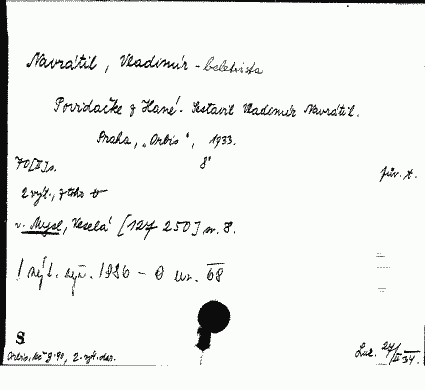 Navrátil, Vladimír - beletrista
Povídačke z Hané. Sestavil Vladimír Navrátil.
Praha, „Orbis“, 1933.
70 [II] s. 8°
přív. A.
2 výt., z toho
v. Mysl, Veselá [127 250] sv. 8.
! výt. 1986 - 68
S
Orbis, 2. výt. dar.
24/II 34.